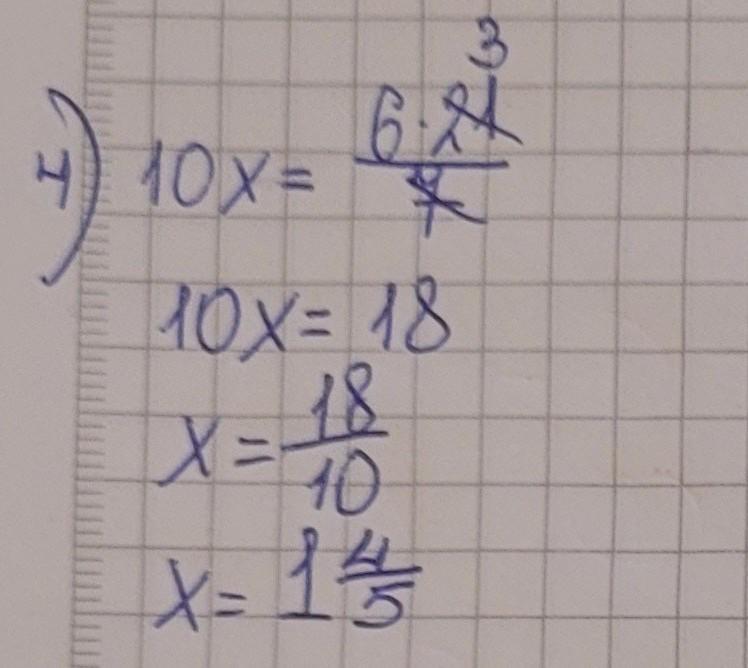 4) 10x = (6·21)/7 3
10x = 18
x = 18/10
x = 1 4/5